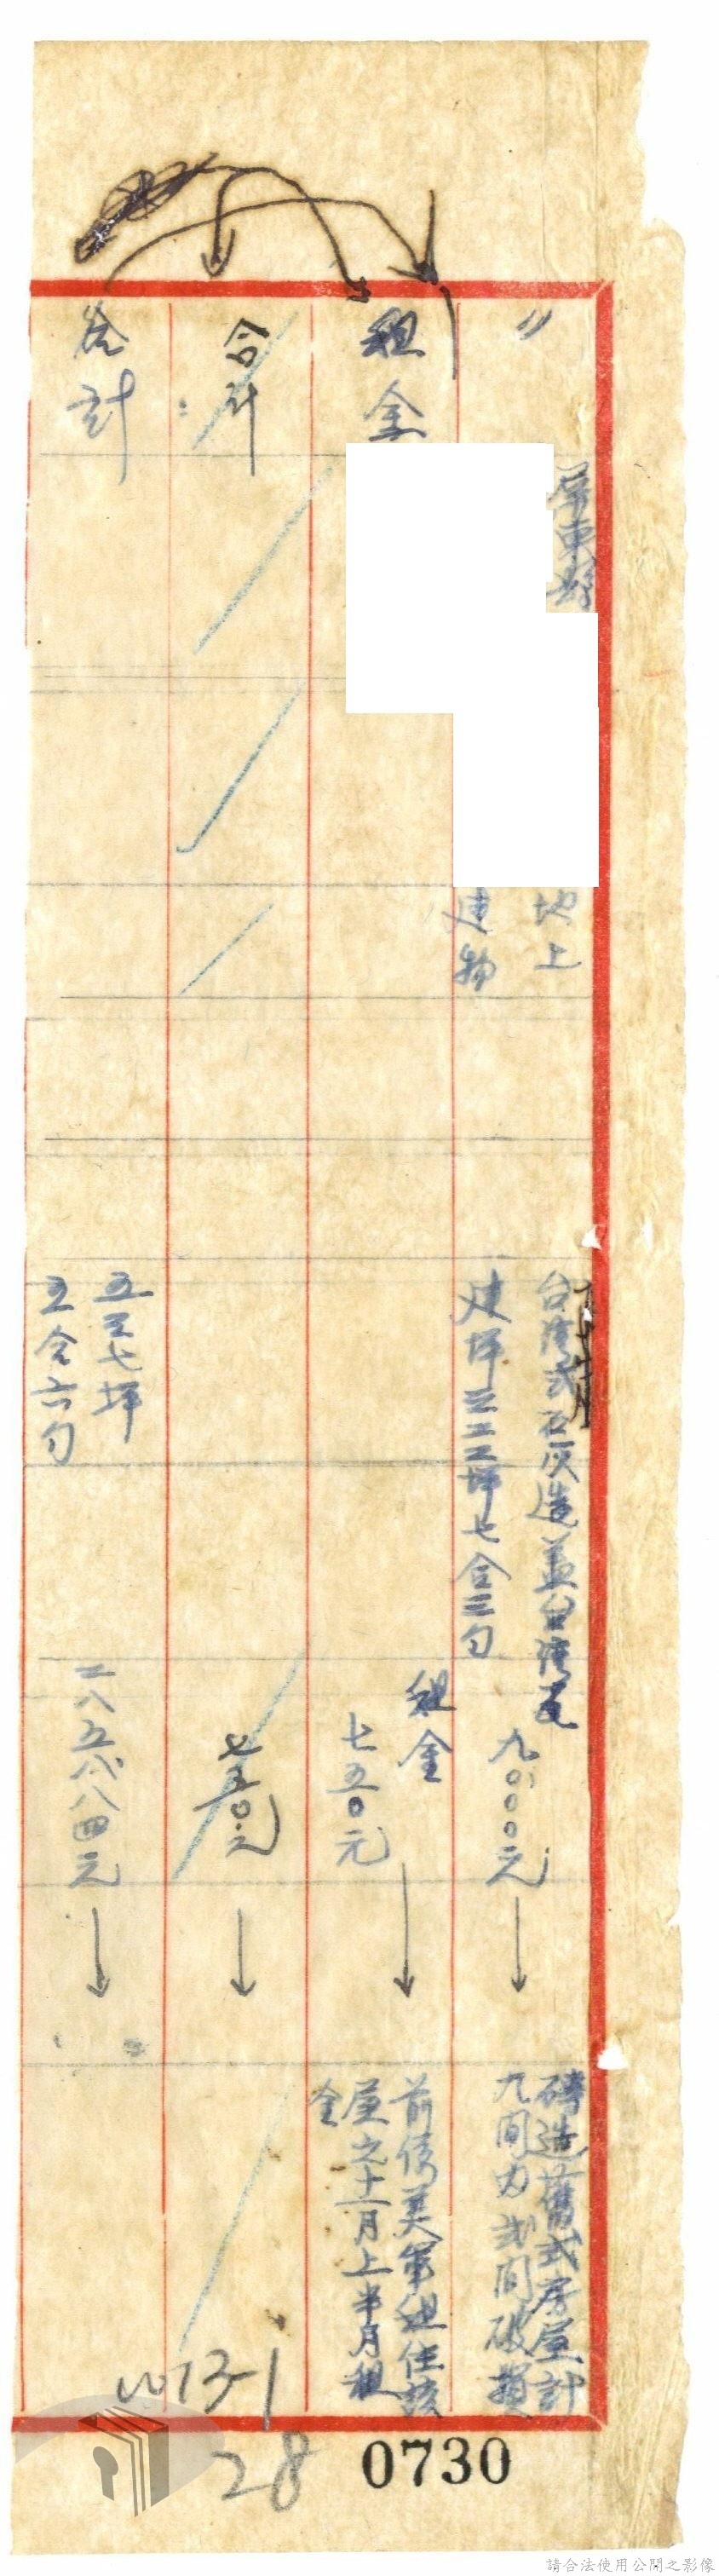 〃
屏東縣
地上
建物
台灣式石灰造蓋台灣瓦
建坪三二二坪七合三勺
九〇〇〇元
磚造舊式房屋計
九間內貳間破損
租金
租金
七五〇元
前係美軍租住該
屋之十一月上半月租
金
合計
七五〇元
總計
五三七坪
五合六勺
二八五八八四元
13-1
28
0730
請合法使用公開之影像